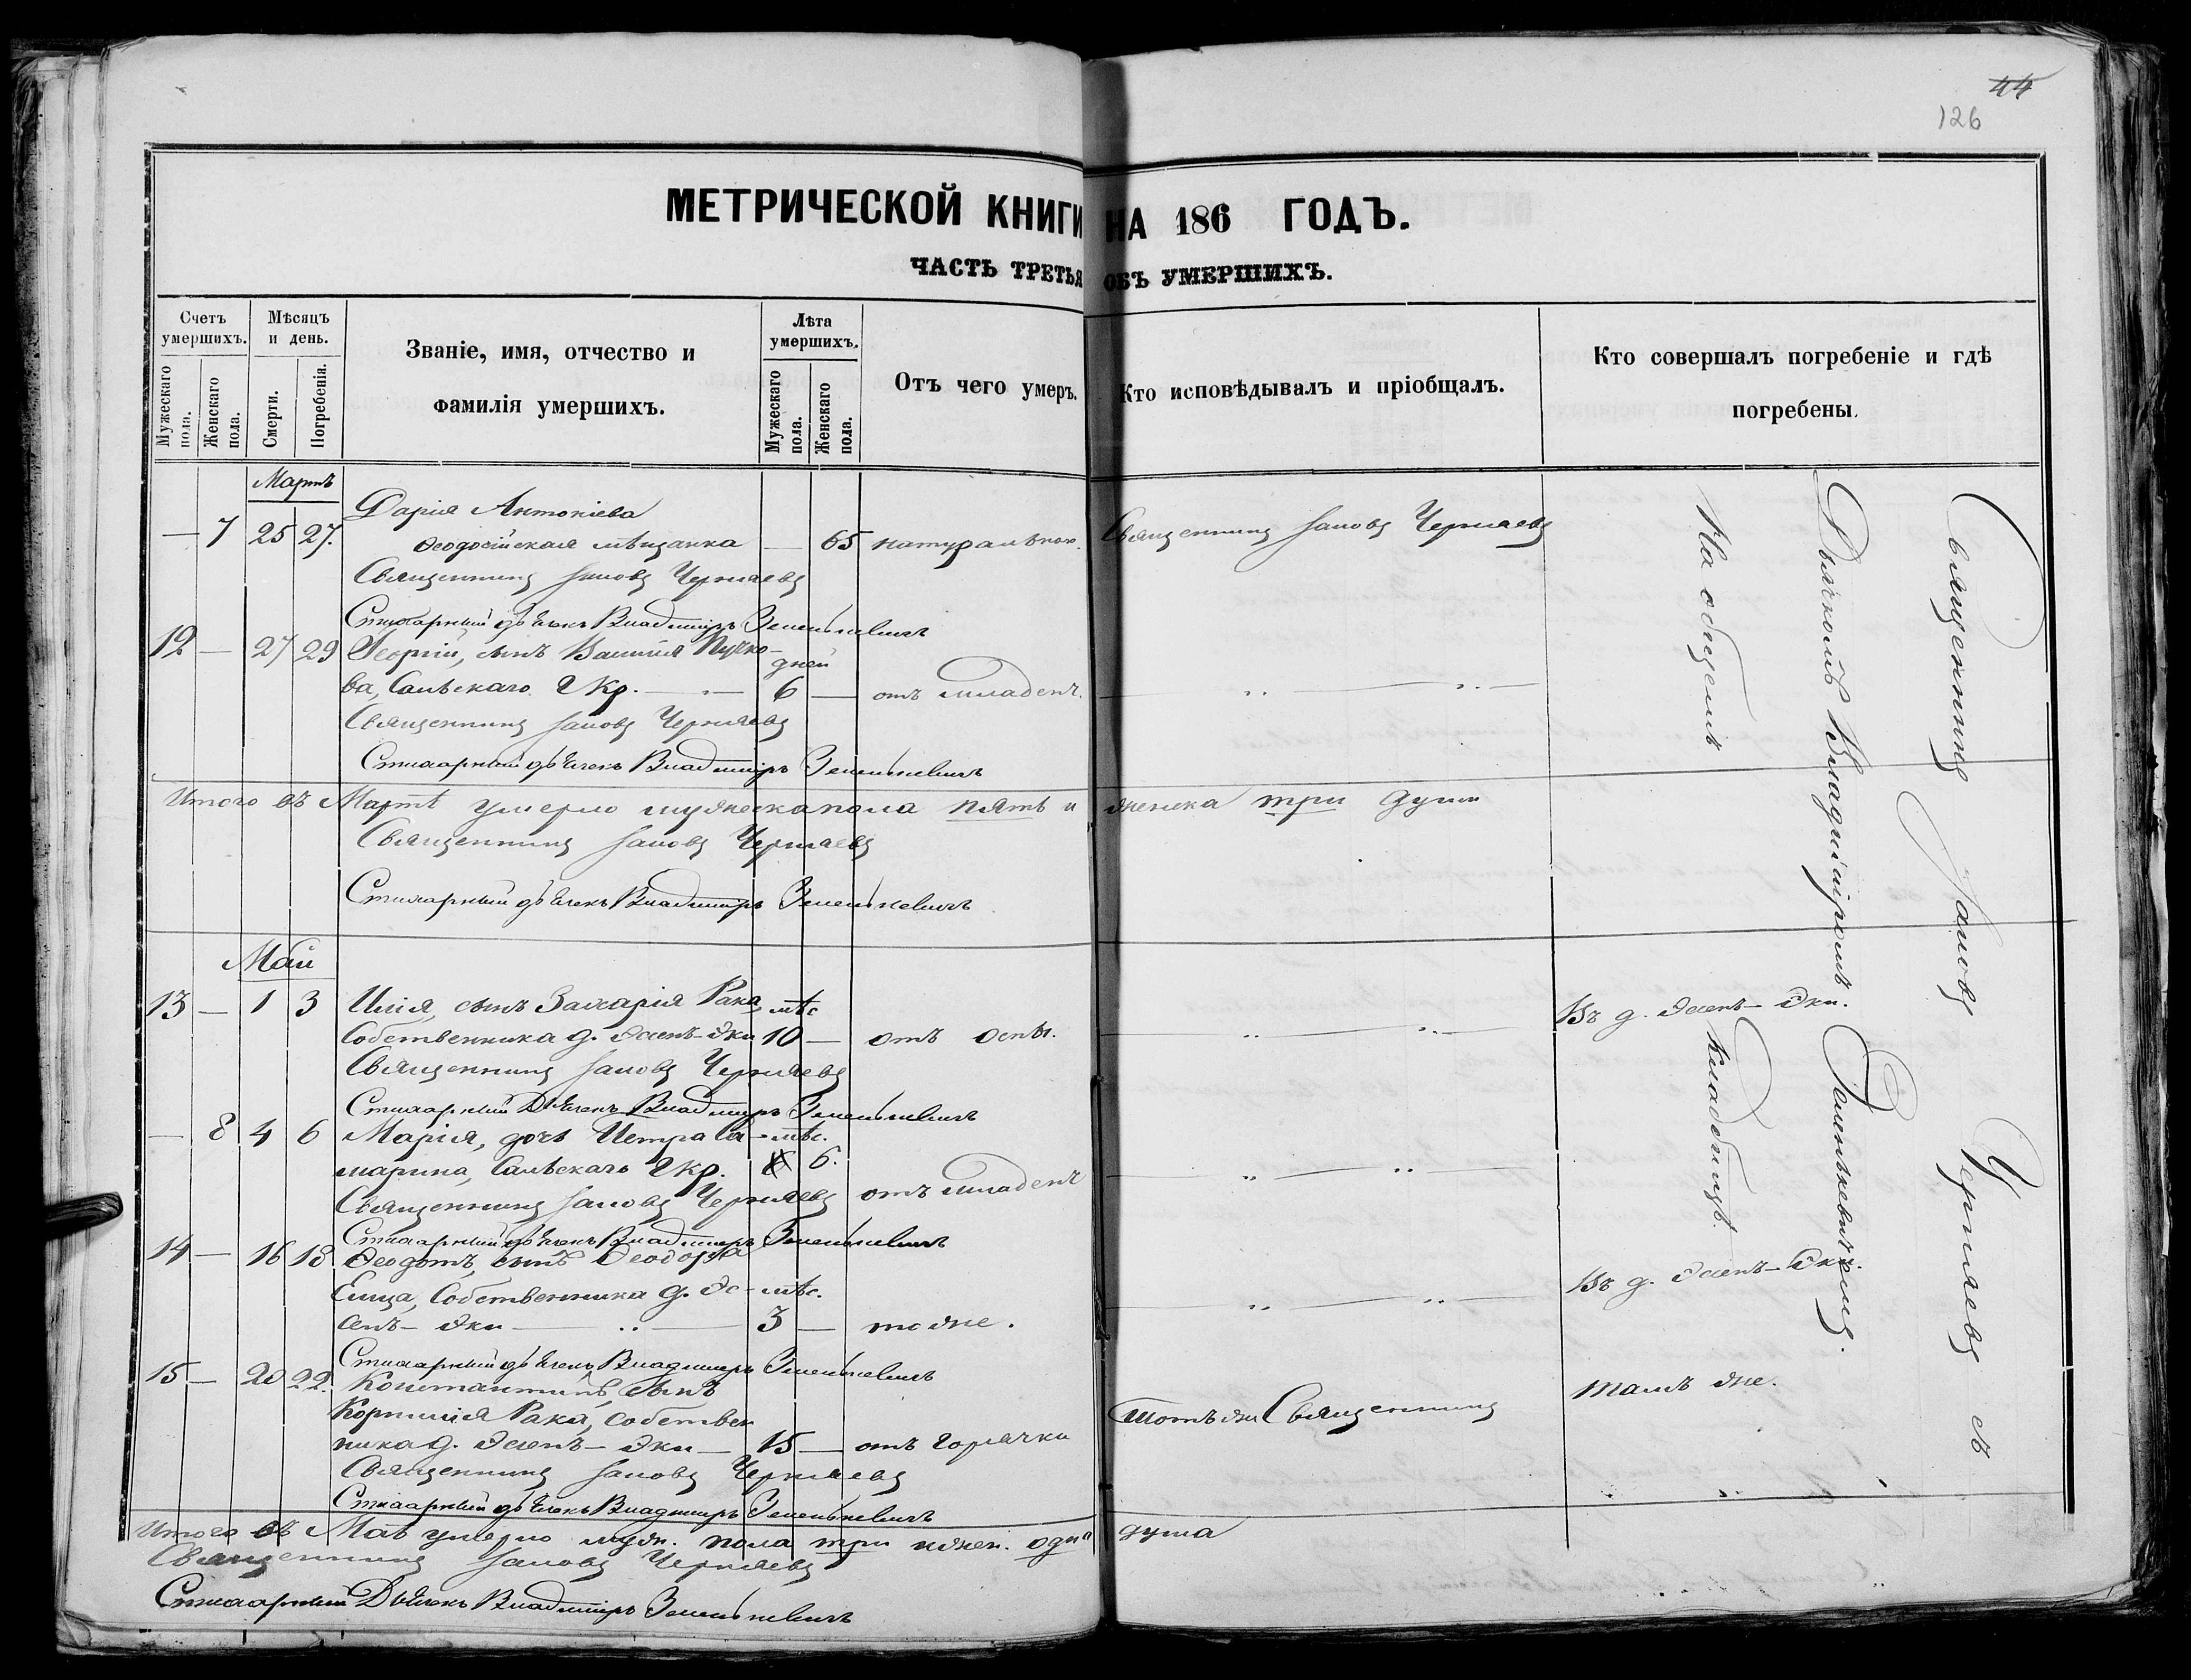 44
126
МЕТРИЧЕСКОЙ КНИГИ НА 186 ГОДЪ.
ЧАСТЬ ТРЕТЬЯ ОБЪ УМЕРШИХЪ.
Счетъ умершихъ.
Мужескаго пола.
Женскаго пола.
Мѣсяцъ и день.
Смерти.
Погребенія.
Званіе, имя, отчество и
фамилія умершихъ.
Лѣта умершихъ.
Мужескаго пола.
Женскаго пола.
Отъ чего умеръ.
Кто исповѣдывалъ и пріобщалъ.
Кто совершалъ погребеніе и гдѣ
погребены.
Мартъ
Дарія Антоніева
— 7 25 27. Ѳеодосійская мѣщанка — 65 натуральною. Священникъ Іаковъ Черняевъ
Священникъ Іаковъ Черняевъ
Стихарный дьячекъ Владиміръ Зеленкевичъ
12 — 27 29 Георгій, сынъ Василія Пучко-
дней
ва, Сальскаго 2 Кр. — 6 — отъ младенч.
Священникъ Іаковъ Черняевъ
Стихарный дьячекъ Владиміръ Зеленкевичъ
Итого въ Мартѣ умерло мужеска пола пять и женска три души
Священникъ Іаковъ Черняевъ
Стихарный дьячекъ Владиміръ Зеленкевичъ
Май
13 — 1 3 Илія, сынъ Захарія Рака, мѣс.
Собственника д. Эсенъ-Эки 10 — отъ оспы. Въ д. Эсенъ-Эки.
Священникъ Іаковъ Черняевъ
Стихарный Дьячекъ Владиміръ Зеленкевичъ
— 8 4 6 Марія, дочь Петра Са- мѣс.
марина, Сальскаго 2 Кр. 6.
Священникъ Іаковъ Черняевъ отъ младенч
Стихарный дьячекъ Владиміръ Зеленкевичъ
14 — 16 18 Ѳеодотъ, сынъ Ѳеодора
Собственника д. Э- мѣс. Въ д. Эсенъ-Эки.
сенъ-Эки — 3 — тоже.
Стихарный дьячекъ Владиміръ Зеленкевичъ
15 — 20 22. Константинъ, сынъ тамъ же.
Корнилія Рака, собствен
ника д. Эсенъ-Эки — 15 — отъ горячки Тотъ же Священникъ
Священникъ Іаковъ Черняевъ
Стихарный дьячекъ Владиміръ Зеленкевичъ
Итого въ Маѣ умерло муж. пола три и жен. одна душа
Священникъ Іаковъ Черняевъ
Стихарный Дьячекъ Владиміръ Зеленкевичъ
Священникъ Іаковъ Черняевъ съ
Дьячкомъ Владиміромъ Зеленкевичемъ.
На общемъ кладбищѣ.